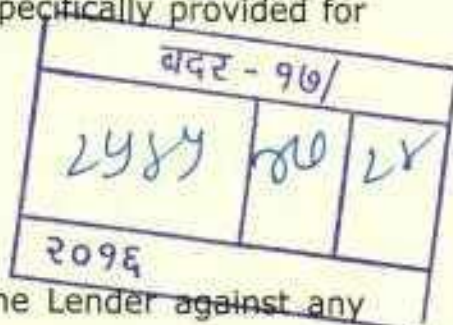 specifically provided for
बदर - १७/
२०१६
the Lender against any